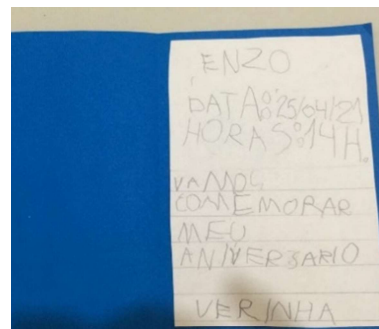 ENZO
DATA: 25/04/21
HORAS: 14H.
VAMOS
COMEMORAR
MEU
ANIVERSARIO
VERINHA